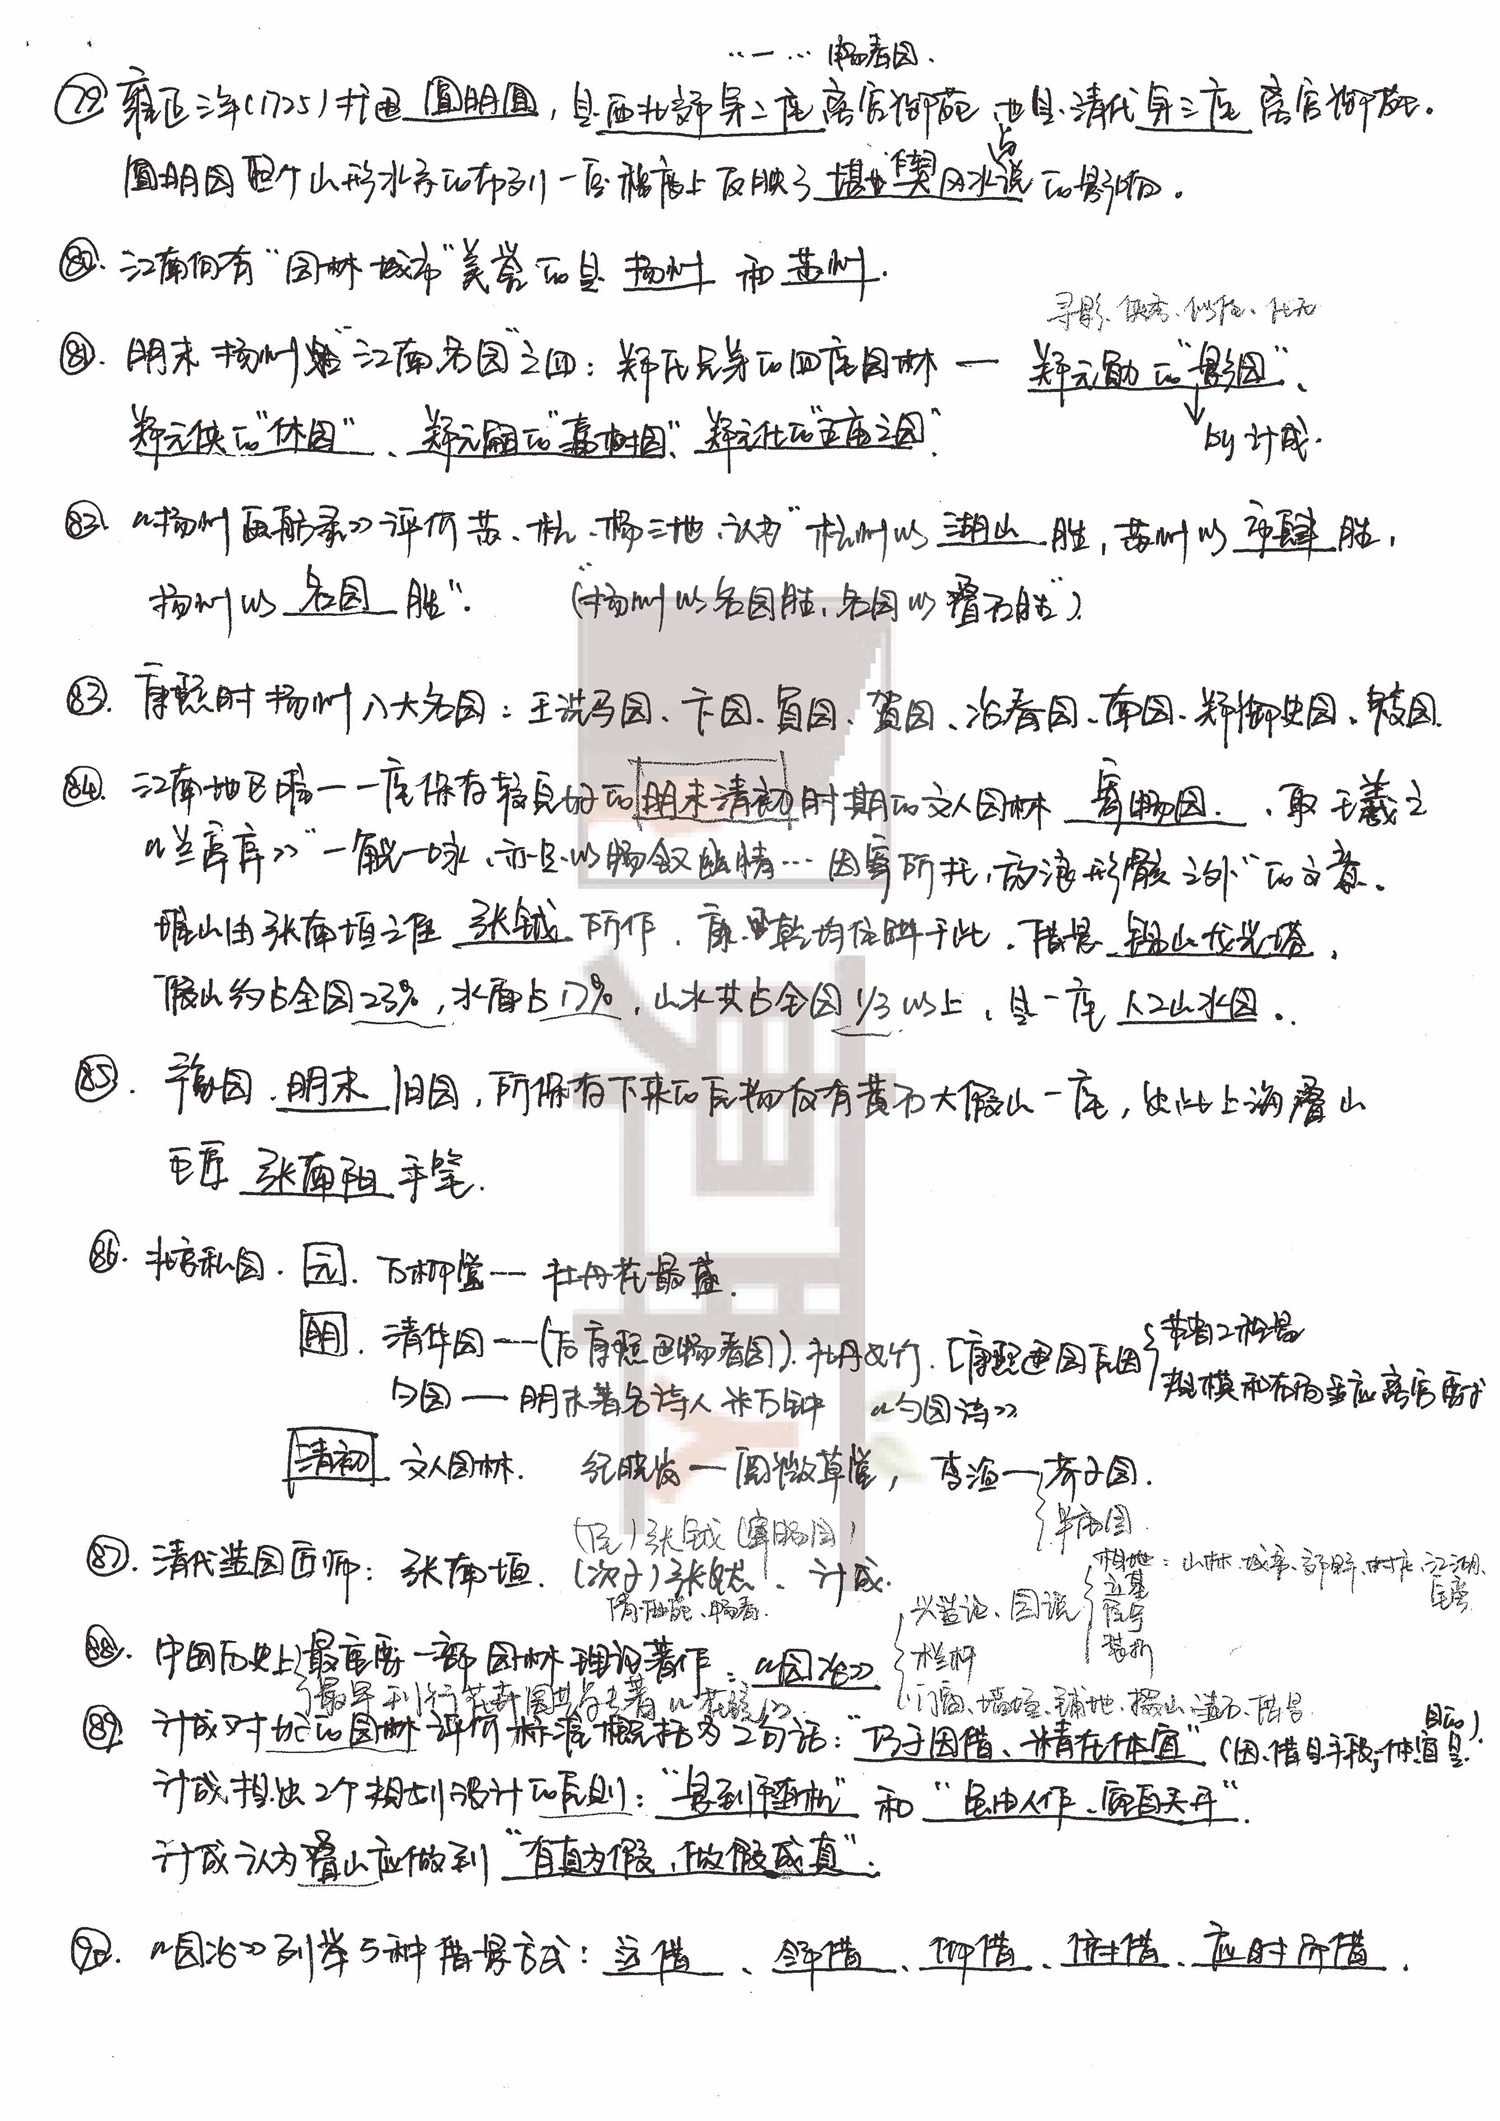 ……一… 畅春园.
79 雍正三年(1725)扩建 圆明园, 是西北郊第二座离宫御苑 也是清代第三座 离宫御苑.
圆明园整个山形水系的布列一定程度上反映了堪舆风水说的影响.
80. 江南向有“园林城市”美誉的是 扬州 和 苏州.
寻影、侠秀、似
81. 明末扬州“江南名园”之四: 郑氏兄弟的四座园林 — 郑元勋的“影园”、
郑元侠的“休园”、郑元嗣的“嘉树园”、郑元化的“五亩之园”.
by 计成.
82. 《扬州画舫录》评价苏、杭、扬三地, 认为“杭州以 湖山 胜, 苏州以 市肆 胜,
扬州以 名园 胜”. (“扬州以名园胜, 名园以叠石胜”).
83. 康熙时扬州八大名园: 王洗马园、卞园、员园、贺园、冶春园、南园、郑御史园、筱园.
84. 江南地区唯一一座保存较良好的明末清初时期的文人园林 寄畅园. 、取王羲之
《兰亭序》“一觞一咏, 亦足以畅叙幽情… 因寄所托, 放浪形骸之外”的文意.
堆山由张南垣之侄 张钺 所作. 康、乾均驻跸于此. 借景 锡山龙光塔,
假山约占全园23%, 水面占17%, 山水共占全园1/3以上, 是一座 人工山水园.
85. 豫园. 明末 旧园, 所保存下来的原物仅有黄石大假山一座, 出此上海叠山
巨匠 张南阳 手笔.
86. 北京私园. 元. 万柳堂 — 牡丹花最盛.
明. 清华园 — (后康熙建畅春园). 牡丹&竹. [康熙建园原因 { 节省工程量
规模和布局适应离宫要求
勺园 — 明末著名诗人 米万钟 《勺园诗》
清初 文人园林. 纪晓岚 — 阅微草堂, 李渔 — 芥子园.
半亩园.
(侄) 张钺 (寄畅园)
87. 清代造园匠师: 张南垣. (次子) 张然、计成.
相地: 山林、城市、郊野、村庄、江湖、
立基
屋宇
装折
兴造论、园说
88. 中国历史上最重要一部园林理论著作: 《园冶》
栏杆
最早刊行花卉园艺学专著《花镜》.
门窗、墙垣、铺地、掇山、选石、借景
89. 计成对好的园林评价标准概括为2句话: “巧于因借、精在体宜” (因、借是手段, 体宜是目的)
计成提出2个规划设计的原则: “景到随机” 和 “虽由人作、宛自天开”.
计成认为叠山应做到 “有真为假, 做假成真”.
90. 《园冶》列举5种借景方式: 远借、邻借、仰借、俯借、应时所借.